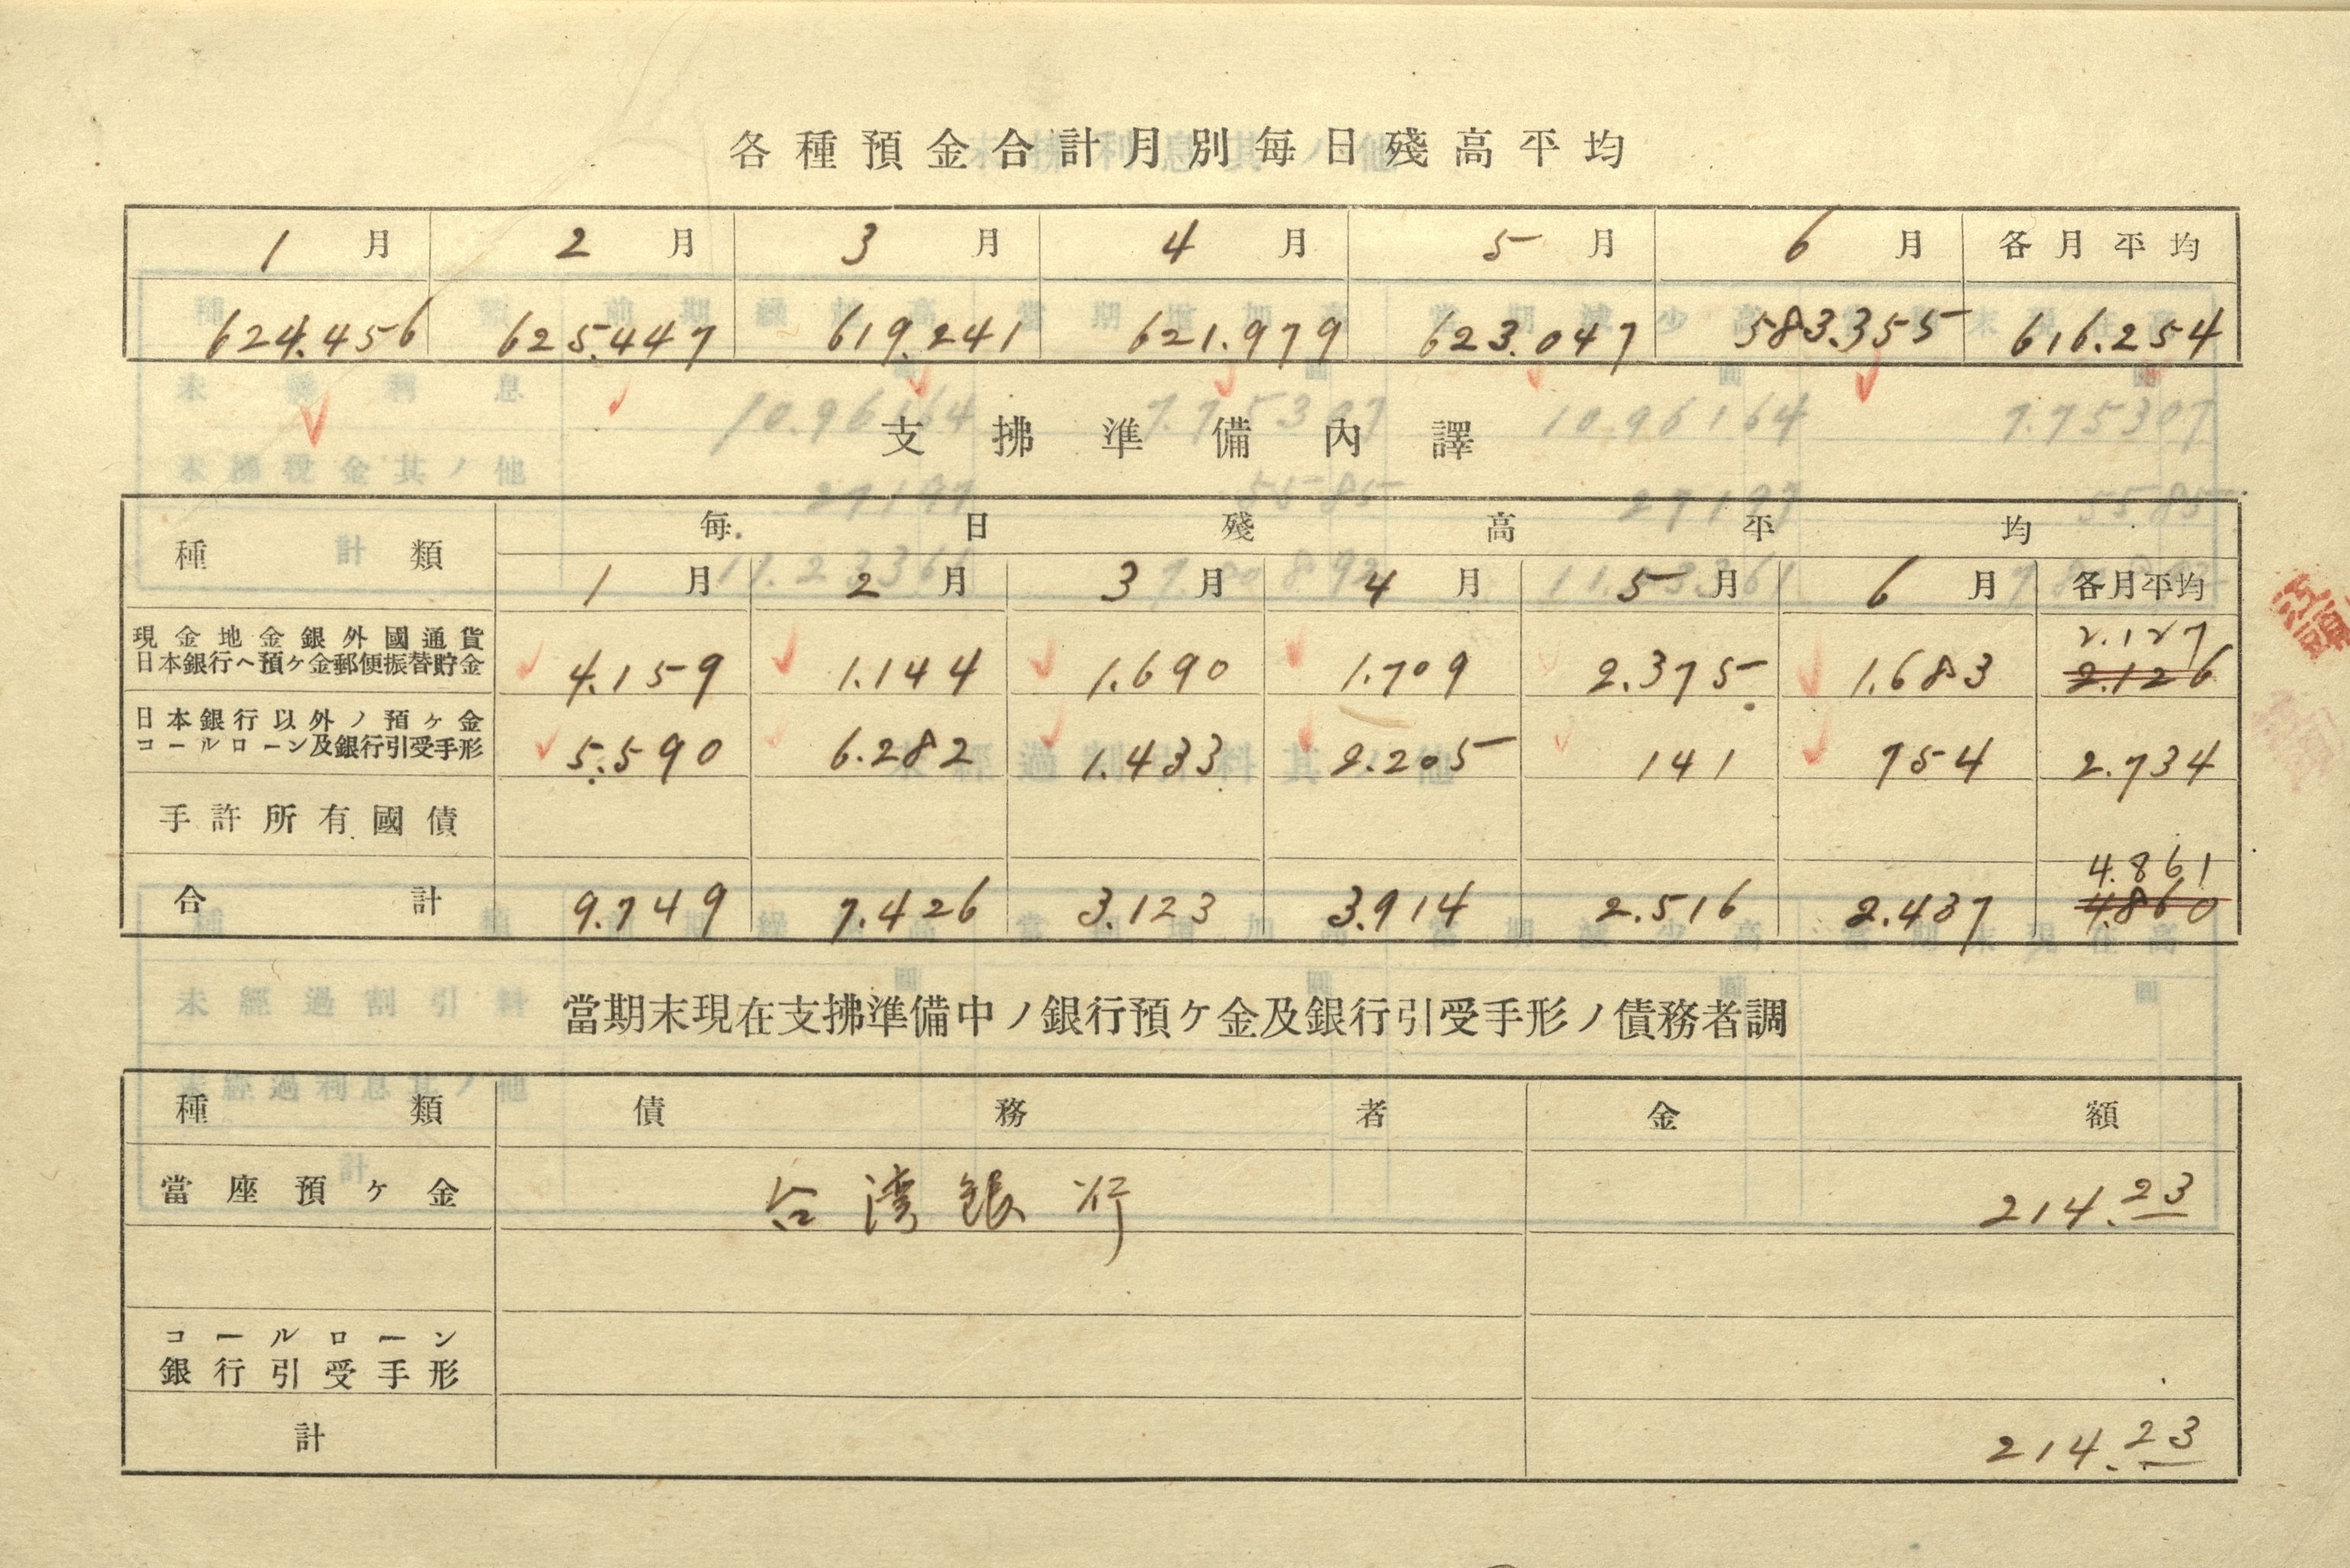 各種預金合計月別每日殘高平均
1月 2月 3月 4月 5月 6月 各月平均
624.456 625.447 619.241 621.979 623.047 583.355 616.254
支拂準備內譯
種類 每日殘高平均
1月 2月 3月 4月 5月 6月 各月平均
現金地金銀外國通貨 2.127
日本銀行ヘ預ケ金郵便振替貯金 4.159 1.144 1.690 1.709 2.375 1.683 2.126
日本銀行以外ノ預ケ金
コールローン及銀行引受手形 5.590 6.282 1.433 2.205 141 754 2.734
手許所有國債
4.861
合計 9.749 7.426 3.123 3.914 2.516 2.437 4.860
當期末現在支拂準備中ノ銀行預ケ金及銀行引受手形ノ債務者調
種類 債務者 金額
當座預ケ金 台湾銀行 214.23
コールローン
銀行引受手形
計 214.23